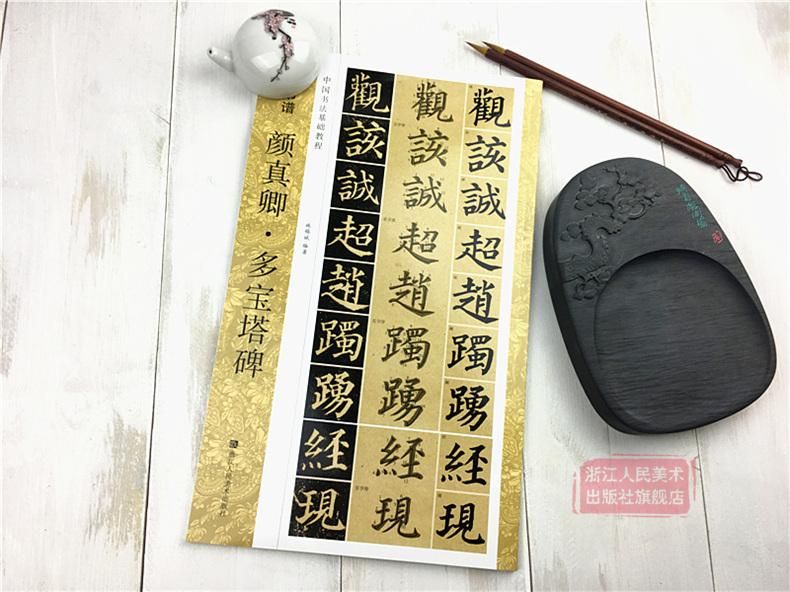 谱
颜真卿·多宝塔碑
浙江人民美术出版社
中国书法基础教程
编著
觀 觀 觀
該 該 該
誠 誠 誠
超 超 超
趙 趙 趙
躅 躅 躅
踴 踴 踴
經 經 經
現 現 現
浙江人民美术
出版社旗舰店